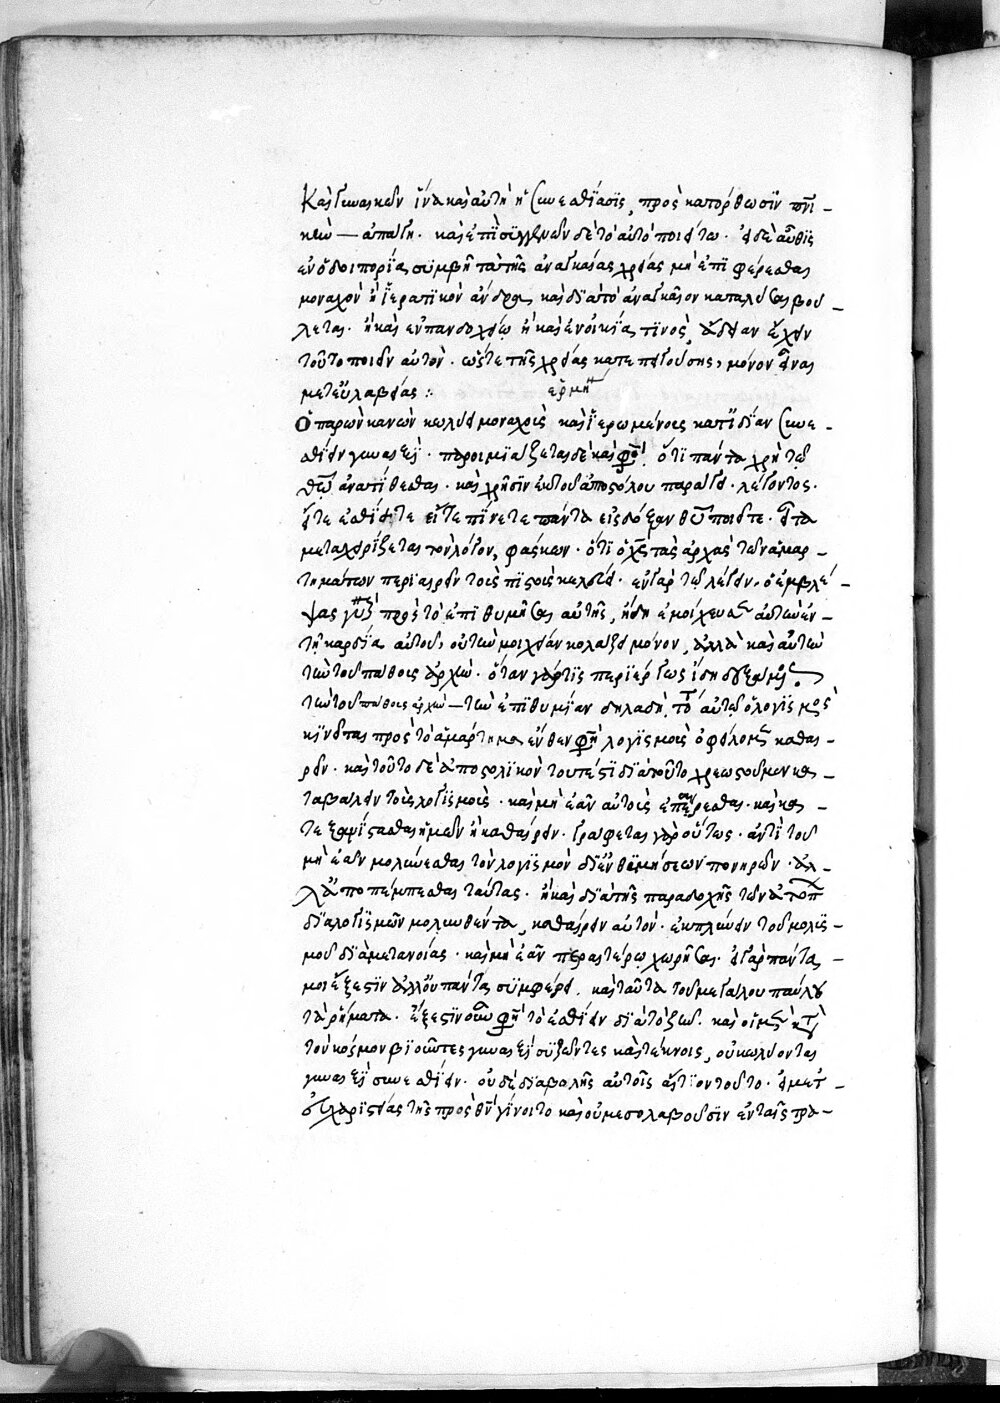 καὶ γυναικῶν ἵνα καὶ αὐτὴ ἡ συνεστίασις, πρὸς κατόρθωσιν πνι-
κὴν — ἀπάγῃ. καὶ ἐπὶ συγγενῶν δὲ τὸ αὐτὸ ποιείτω. εἰ δὲ αὖθις
ἐν ὁδοιπορίᾳ συμβῇ τὰ τῆς ἀναγκαίας χρείας μὴ ἐπιφέρεσθαι
μοναχὸν ἢ ἱερατικὸν ἄνδρα, καὶ διὰ τὸ ἀναγκαῖον καταλῦσαι βού-
λεται. ἢ καὶ ἐν πανδοχείῳ ἢ καὶ ἐν οἰκίᾳ τινὸς, ἄδειαν ἔχειν
τοῦτο ποιεῖν αὐτὸν. ὥστε τῆς χρείας κατεπειγούσης, μόνον εἶναι
μετ' εὐλαβείας:
ἑρμη
Ὁ παρὼν κανὼν κωλύει μοναχοὺς καὶ ἱερωμένους κατ' ἰδίαν συνε-
σθίειν γυναιξὶ. παροιμιάζεται δὲ καὶ φησὶ ὅτι πάντα χρὴ τῷ
θεῷ ἀνατίθεσθαι. καὶ χρῆσιν ἐκ τοῦ ἀποστόλου παράγει. λέγοντος.
εἴτε ἐσθίετε εἴτε πίνετε πάντα εἰς δόξαν θεοῦ ποιεῖτε. εἶτα
μεταχειρίζεται τὸν λόγον, φάσκων. ὅτι ὁ χς τὰς ἀρχὰς τῶν ἁμαρ-
τημάτων περιαιρεῖν τοῖς πιστοῖς κελεύει. ἐν γὰρ τῷ λέγειν. ὁ ἐμβλέ-
ψας γυναικὶ πρὸς τὸ ἐπιθυμῆσαι αὐτῆς, ἤδη ἐμοίχευσεν αὐτὴν ἐν
τῇ καρδίᾳ αὐτοῦ, οὐ τὴν μοιχείαν κολάζει μόνον, ἀλλὰ καὶ αὐτὴν
τὴν τοῦ πάθους ἀρχὴν. ὅταν γάρ τις περιέργως ἴδῃ
τὴν τοῦ πάθους ἀρχὴν — τὴν ἐπιθυμίαν δηλαδὴ, τότε αὐτοῦ ὁ λογισμὸς
κινεῖται πρὸς τὸ ἁμάρτημα ἔνθεν φησὶ λογισμοὺς ὀφείλομεν καθαί-
ρειν. καὶ τοῦτο δὲ ἀποστολικὸν τουτέστι διὰ τοῦτο χρεωστοῦμεν κα-
ταβάλλειν τοὺς λογισμοὺς. καὶ μὴ ἐᾶν αὐτοὺς ἐπαίρεσθαι. καὶ κα-
τεξανίστασθαι ἡμῶν ἢ καθαίρειν. γράφεται γὰρ οὕτως. ἀντὶ τοῦ
μὴ ἐᾶν μολύνεσθαι τὸν λογισμὸν δι' ἐνθυμήσεων πονηρῶν. ἀλ-
λ' ἀποπέμπεσθαι ταύτας. ἢ καὶ διὰ τῆς παραδοχῆς τῶν ἀτόπων
διαλογισμῶν μολυνθέντα, καθαίρειν αὐτὸν. ἐκπλύνειν τοῦ μολυσ-
μοῦ διὰ μετανοίας. καὶ μὴ ἐᾶν περαιτέρω χωρῆσαι. εἰ γὰρ πάντα
μοι ἔξεστιν ἀλλ' οὐ πάντα συμφέρει, κατὰ τὰ τοῦ μεγάλου παύλου
τὰ ῥήματα. ἔξεστιν οὖν φησὶ τὸ ἐσθίειν διὰ τὸ ζῆν. καὶ οἱ μὲν κατὰ
τὸν κόσμον βιοῦντες γυναιξὶ συζῶντες καὶ τέκνοις, οὐ κωλύονται
γυναιξὶ συνεσθίειν. οὐδὲ διαβολῆς αὐτοῖς αἴτιον τοῦτο. εἰ μετ'
εὐχαριστίας τῆς πρὸς θν γίνοιτο καὶ οὐ μεσολαβοῦσιν ἐν ταῖς τρα-